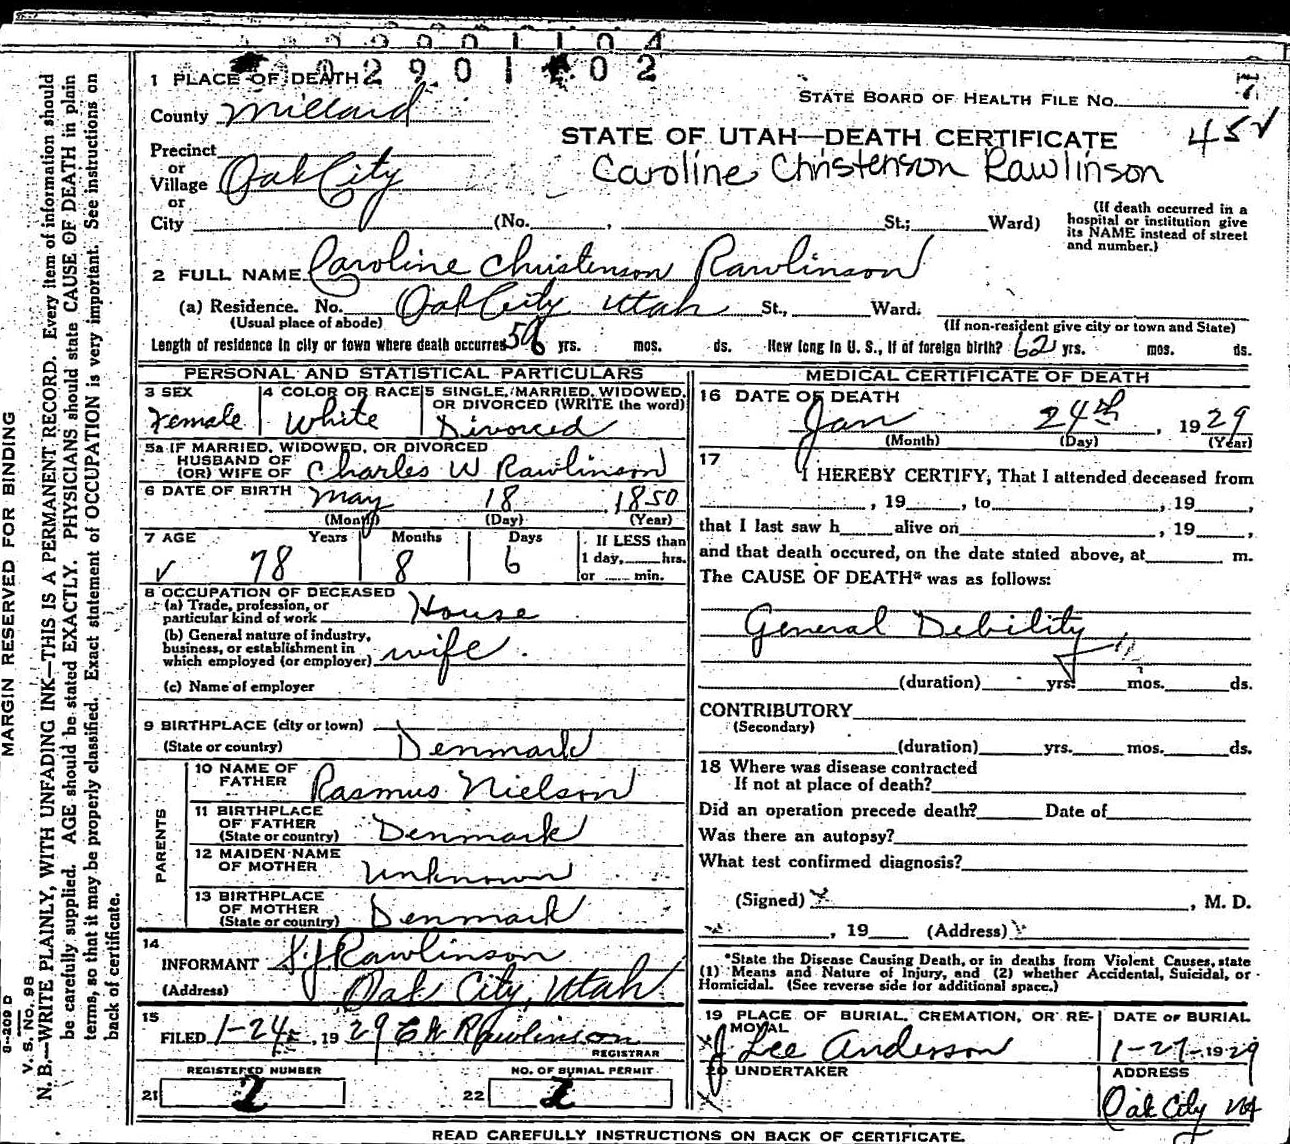 0 2 9 0 1 1 0 2
1 PLACE OF DEATH
STATE BOARD OF HEALTH FILE NO. 7
County Millard
STATE OF UTAH—DEATH CERTIFICATE 452
Caroline Christenson Rawlinson
Precinct
or
Village Oak City
or
City (No. , St.; Ward)
(If death occurred in a
hospital or institution give
its NAME instead of street
and number.)
2 FULL NAME Caroline Christenson Rawlinson
(a) Residence. No. Oak City Utah St., Ward.
(Usual place of abode) (If non-resident give city or town and State)
Length of residence in city or town where death occurred yrs. mos. ds. How long in U. S., if of foreign birth? 62 yrs. mos. ds.
PERSONAL AND STATISTICAL PARTICULARS
3 SEX 4 COLOR OR RACE 5 SINGLE, MARRIED, WIDOWED,
OR DIVORCED (WRITE the word)
Female White Divorced
5a IF MARRIED, WIDOWED, OR DIVORCED
HUSBAND OF
(OR) WIFE OF Charles W Rawlinson
6 DATE OF BIRTH May 18 1850
(Month) (Day) (Year)
7 AGE Years Months Days If LESS than
1 day, hrs.
78 8 6 or min.
8 OCCUPATION OF DECEASED
(a) Trade, profession, or
particular kind of work House
(b) General nature of industry,
business, or establishment in
which employed (or employer) wife.
(c) Name of employer
9 BIRTHPLACE (city or town)
(State or country) Denmark
PARENTS
10 NAME OF
FATHER Rasmus Nielson
11 BIRTHPLACE
OF FATHER
(State or country) Denmark
12 MAIDEN NAME
OF MOTHER Unknown
13 BIRTHPLACE
OF MOTHER
(State or country) Denmark
14
INFORMANT S. J Rawlinson
(Address) Oak City, Utah
15
FILED 1-24, 1929 Rawlinson
REGISTRAR
REGISTERED NUMBER NO. OF BURIAL PERMIT
21 2 22 2
MEDICAL CERTIFICATE OF DEATH
16 DATE OF DEATH
Jan 24th, 1929
(Month) (Day) (Year)
17
I HEREBY CERTIFY, That I attended deceased from
, 19 , to , 19 ,
that I last saw h alive on , 19 ,
and that death occured, on the date stated above, at m.
The CAUSE OF DEATH* was as follows:
General Debility
(duration) yrs. mos. ds.
CONTRIBUTORY
(Secondary)
(duration) yrs. mos. ds.
18 Where was disease contracted
If not at place of death?
Did an operation precede death? Date of
Was there an autopsy?
What test confirmed diagnosis?
(Signed) , M. D.
, 19 (Address)
*State the Disease Causing Death, or in deaths from Violent Causes, state
(1) Means and Nature of Injury, and (2) whether Accidental, Suicidal, or
Homicidal. (See reverse side for additional space.)
19 PLACE OF BURIAL, CREMATION, OR RE- DATE OF BURIAL
MOVAL
J Lee Anderson 1-27-1929
20 UNDERTAKER ADDRESS
Oak City
READ CAREFULLY INSTRUCTIONS ON BACK OF CERTIFICATE.
MARGIN RESERVED FOR BINDING
V. S. No. 98
N. B.—WRITE PLAINLY, WITH UNFADING INK—THIS IS A PERMANENT RECORD. Every item of information should
be carefully supplied. AGE should be stated EXACTLY. PHYSICIANS should state CAUSE OF DEATH in plain
terms, so that it may be properly classified. Exact statement of OCCUPATION is very important. See instructions on
back of certificate.